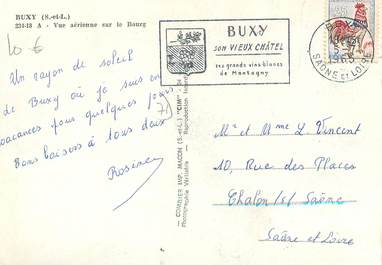 BUXY (S.-et-L.)
234-18 A - Vue aérienne sur le Bourg
10 €
Un rayon de soleil
de Buxy où je suis en
vacances pour quelques jours
Bons baisers à tous deux
Rosine
COMBIER IMP. MACON (S.-et-L.) "CIM"
Photographie Véritable
BUXY
SON VIEUX CHÂTEL
ses grands vins blancs
de Montagny
SAÔNE ET LOIRE
Mr et Mme L. Vincent
10, Rue des Places
Chalon s/ Saône
Saône et Loire